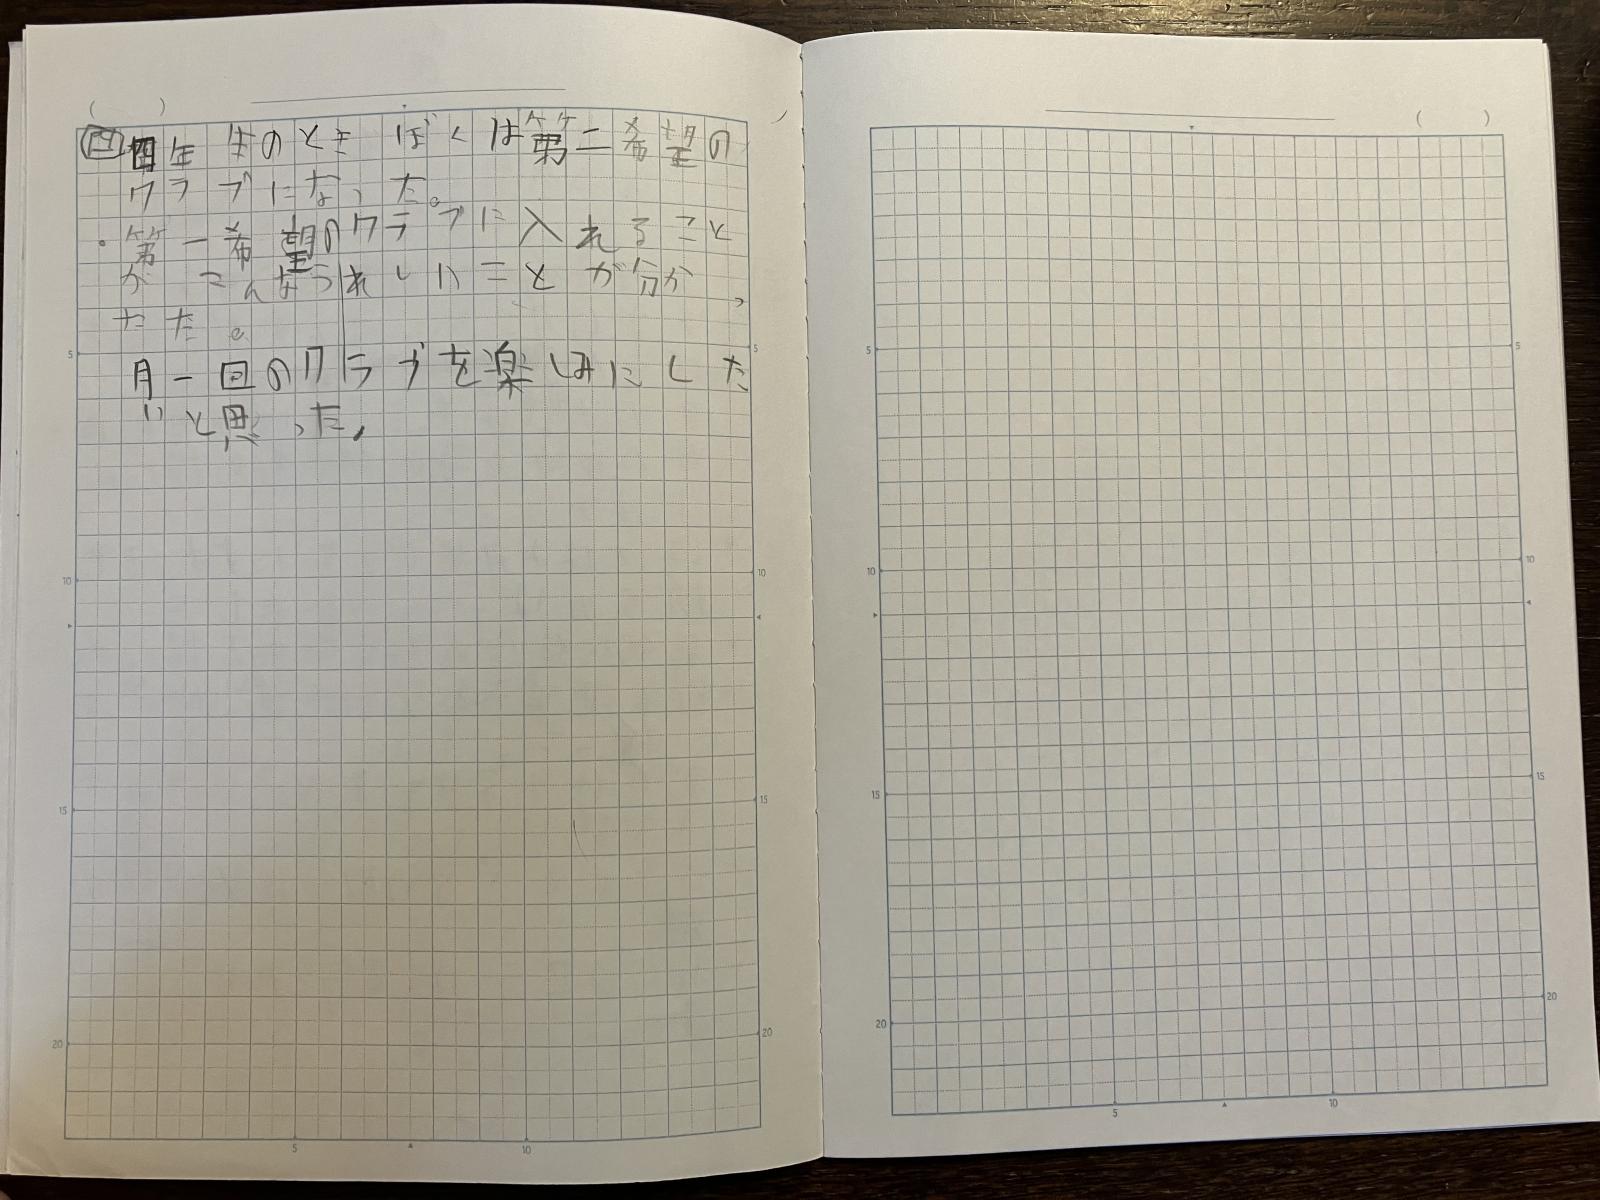 ( )
四 四年生のとき ぼくは第二希望の
クラブになった。
・第一希望のクラブに入れること
が こんなうれしいことが分かっ
た た。
月一回のクラブを楽しみにした
いと思った,
5
10
15
20
5
10
15
20
5
10
( )
5
10
15
20
5
10
15
20
5
10